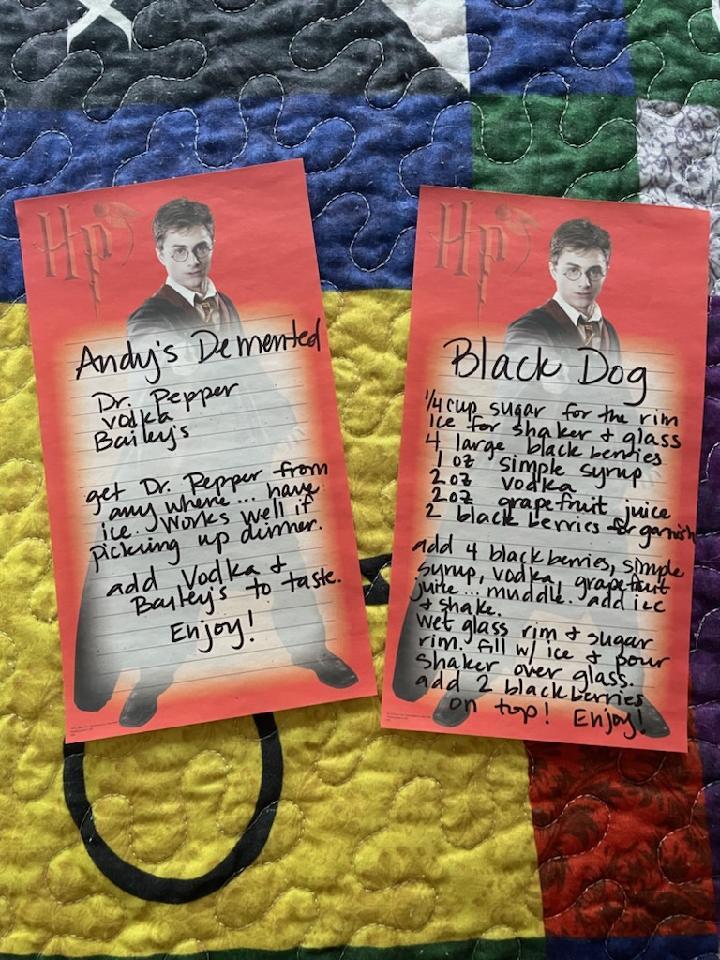 HP
Andy's Demented
Dr. Pepper
vodka
Bailey's
get Dr. Pepper from
any where... have
ice. Works well if
picking up dinner.
add Vodka &
Bailey's to taste.
Enjoy!
HP
Black Dog
1/4 cup sugar for the rim
ice for shaker & glass
4 large black berries
1 oz simple syrup
2 oz vodka
2 oz grapefruit juice
2 black berries for garnish
add 4 blackberries, simple
syrup, vodka, grapefruit
juice... muddle. add ice
& shake.
wet glass rim & sugar
rim. fill w/ ice & pour
shaker over glass.
add 2 blackberries
on top! Enjoy!